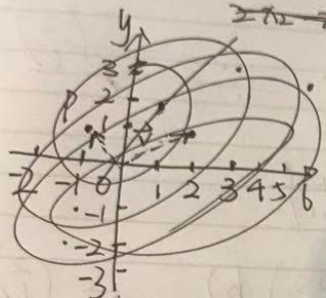 y
3
P 2
1
-2 -1 0 1 2 3 4 5 6
-1
-2
-3